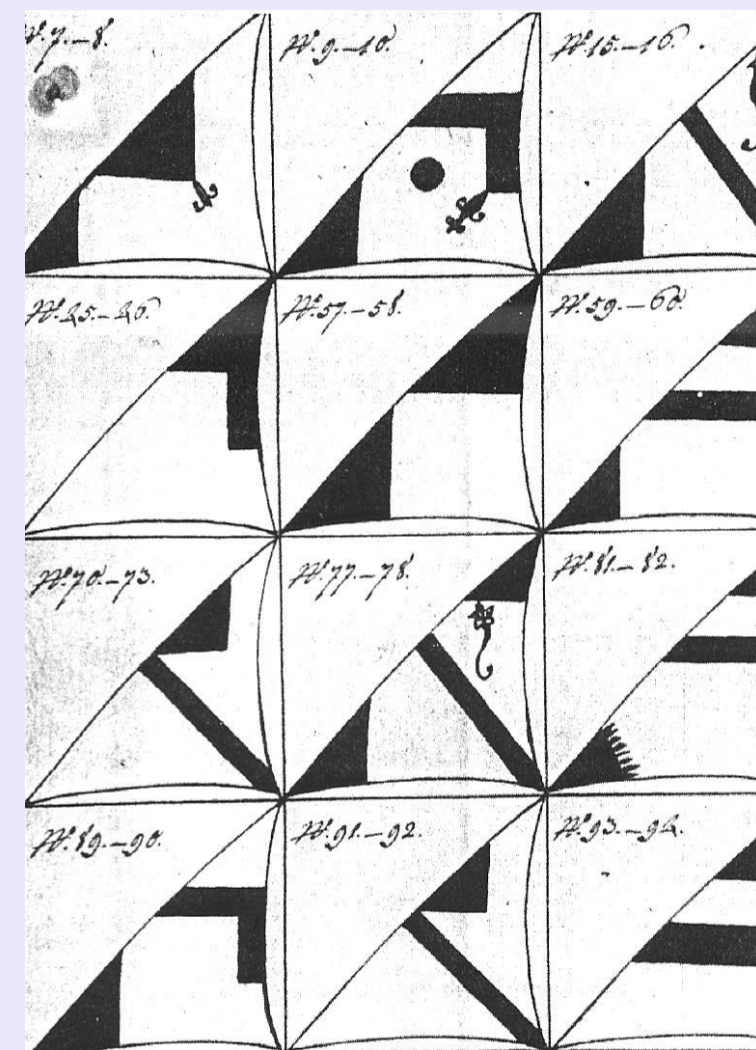 № 7.–8.
№ 9.–10.
№ 15.–16.
№ 25.–26.
№ 57.–58.
№ 59.–60.
№ 70.–73.
№ 77.–78.
№ 81.–82.
№ 89.–90.
№ 91.–92.
№ 93.–94.